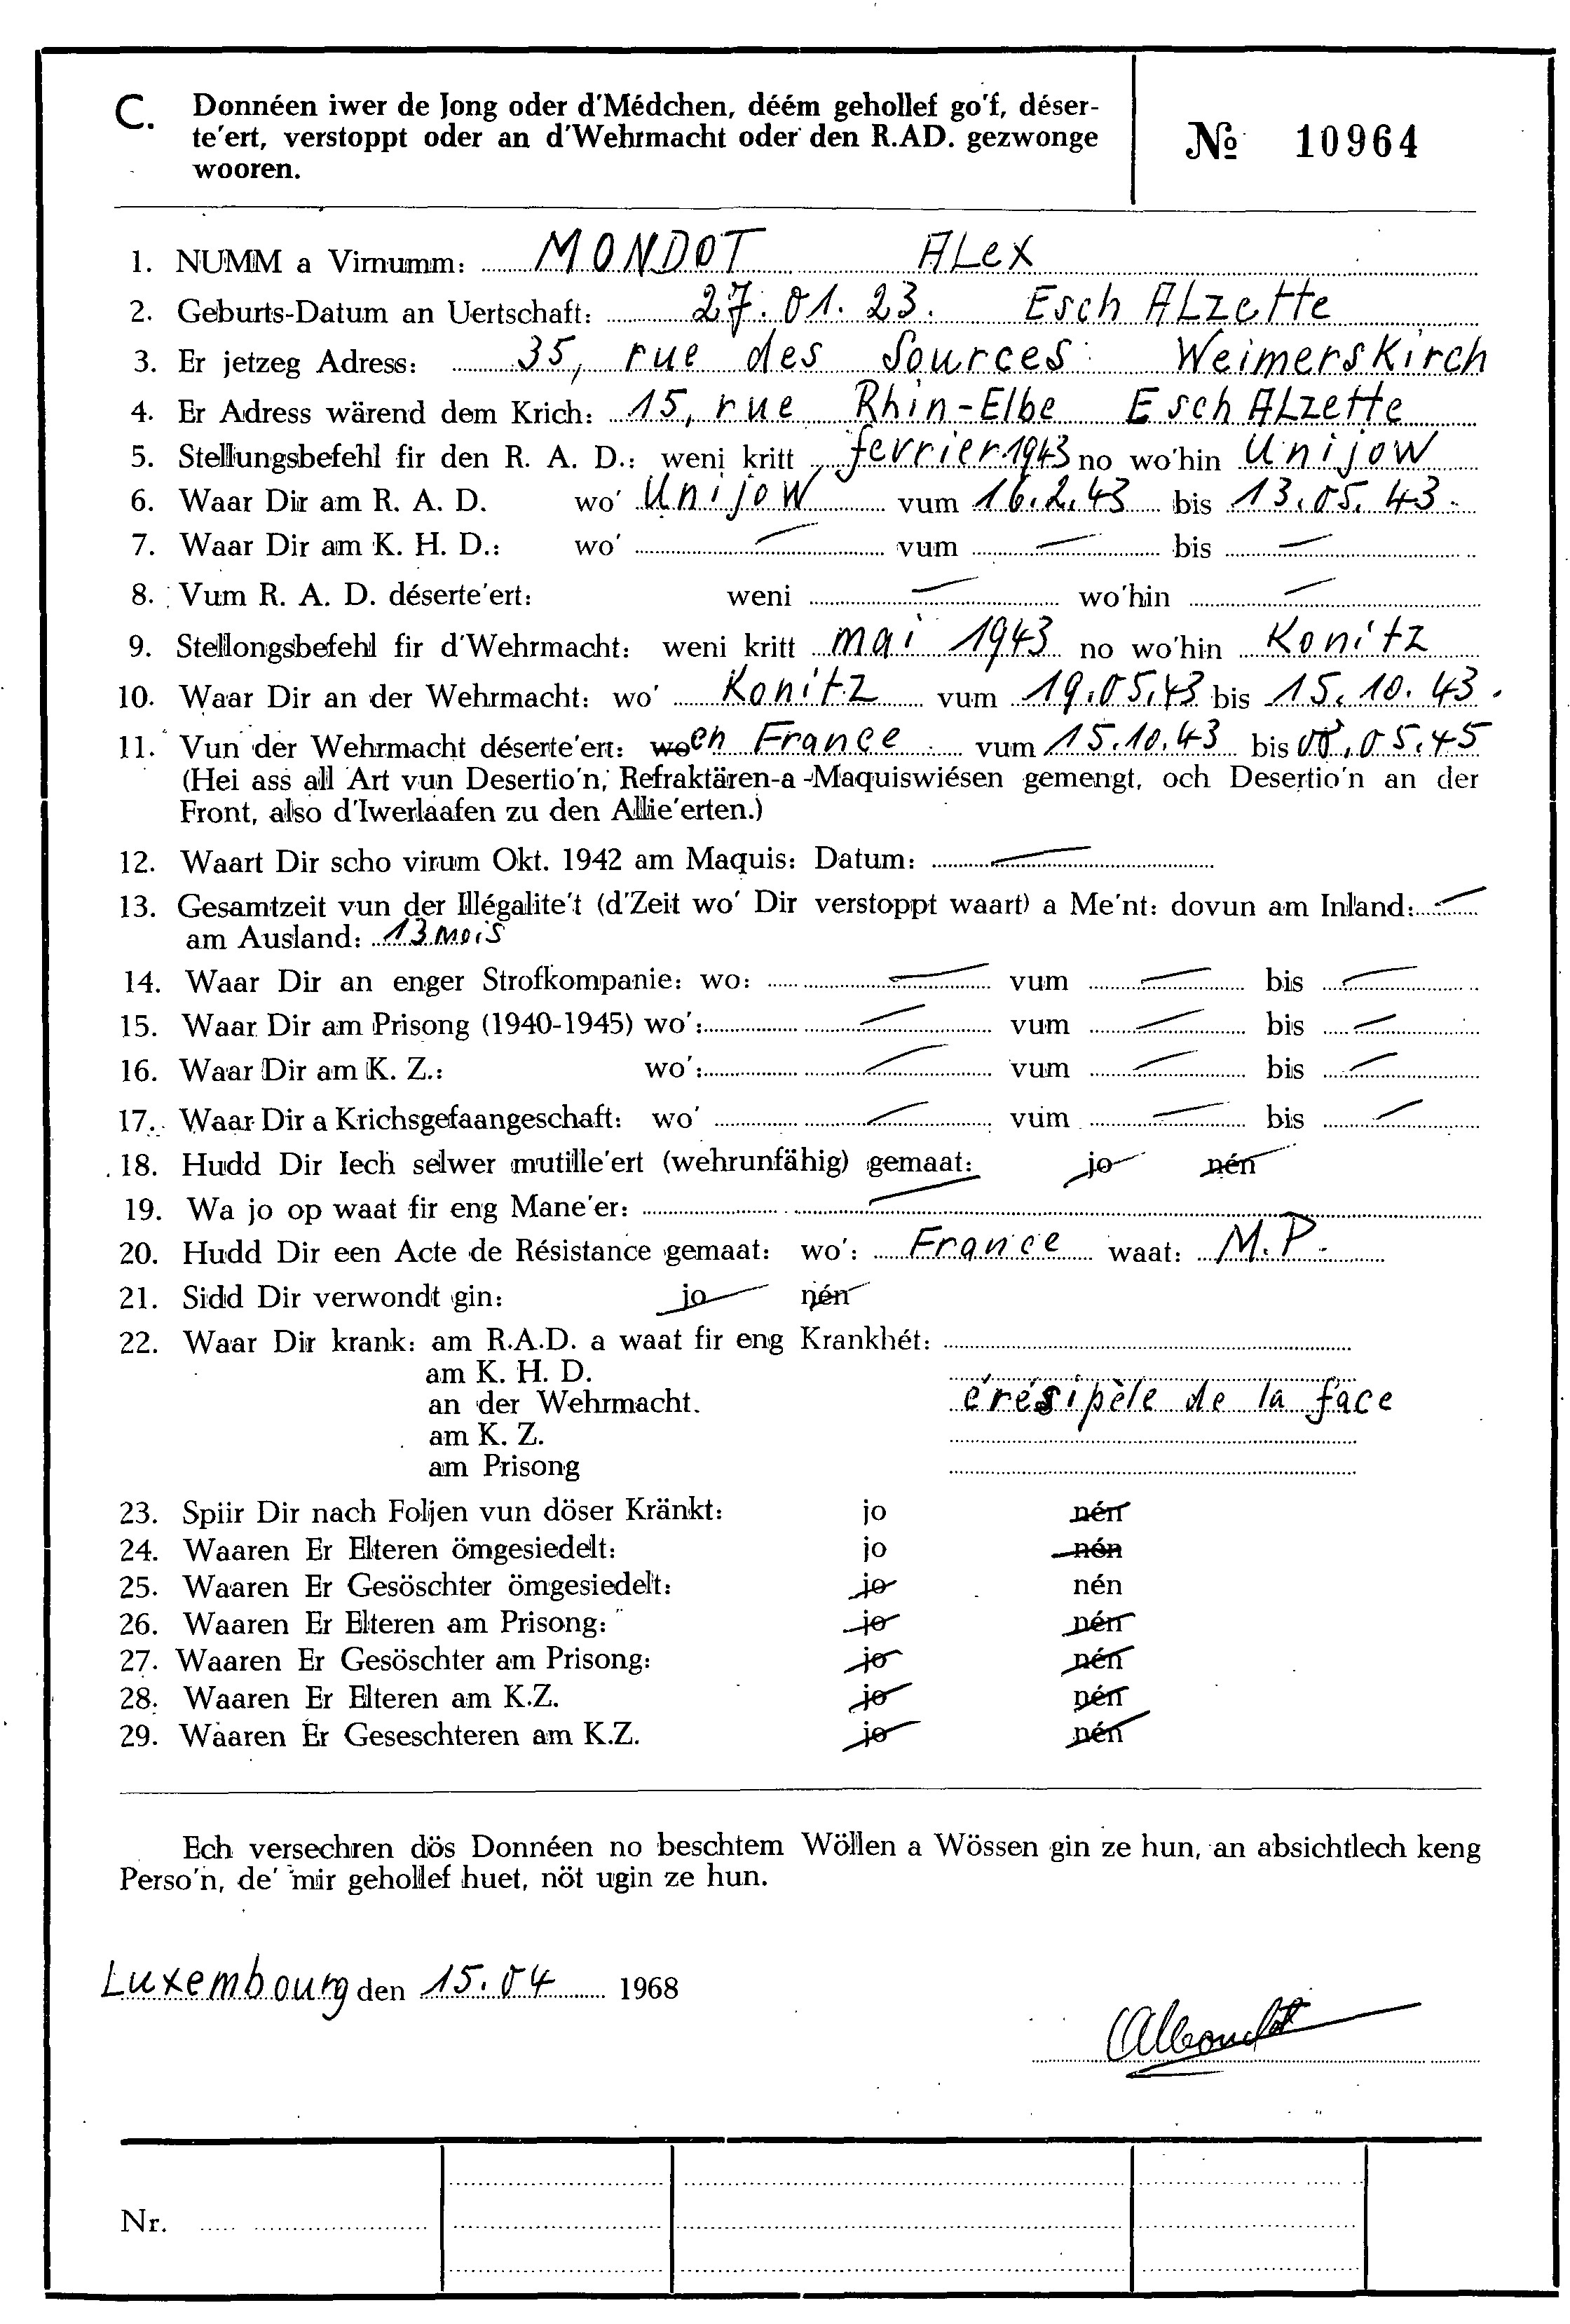 C. Donnéen iwer de Jong oder d'Médchen, déém gehollef go'f, déser-
te'ert, verstoppt oder an d'Wehrmacht oder den R.AD. gezwonge
wooren.
№ 10964
1. NUMM a Virnumm: MONDOT ALex
2. Geburts-Datum an Uertschaft: 27.01.23. Esch ALzette
3. Er jetzeg Adress: 35, rue des Sources Weimerskirch
4. Er Adress wärend dem Krich: 15, rue Rhin-Elbe Esch ALzette
5. Stellungsbefehl fir den R. A. D.: weni kritt fevrier 1943 no wo'hin Unijow
6. Waar Dir am R. A. D. wo' Unijow vum 16.2.43 bis 13.05.43.
7. Waar Dir am K. H. D.: wo' — vum — bis —
8. Vum R. A. D. déserte'ert: weni — wo'hin —
9. Stellongsbefehl fir d'Wehrmacht: weni kritt mai 1943 no wo'hin Konitz
10. Waar Dir an der Wehrmacht: wo' Konitz vum 19.05.43 bis 15.10.43.
11. Vun der Wehrmacht déserte'ert: wo en France vum 15.10.43 bis 08.05.45
(Hei ass all Art vun Desertio'n, Refraktären-a-Maquiswiésen gemengt, och Desertio'n an der
Front, also d'Iwerlaafen zu den Allie'erten.)
12. Waart Dir scho virum Okt. 1942 am Maquis: Datum: —
13. Gesamtzeit vun der Illégalite't (d'Zeit wo' Dir verstoppt waart) a Me'nt: dovun am Inland: —
am Ausland: 13 mois
14. Waar Dir an enger Strofkompanie: wo: — vum — bis —
15. Waar Dir am Prisong (1940-1945) wo': — vum — bis —
16. Waar Dir am K. Z.: wo': — vum — bis —
17. Waar Dir a Krichsgefaangeschaft: wo' — vum — bis —
18. Hudd Dir Iech selwer mutille'ert (wehrunfähig) gemaat: jo nén
19. Wa jo op waat fir eng Mane'er: —
20. Hudd Dir een Acte de Résistance gemaat: wo': France waat: M.P.
21. Sidd Dir verwondt gin: jo nén
22. Waar Dir krank: am R.A.D. a waat fir eng Krankhét:
am K. H. D.
an der Wehrmacht. érésipèle de la face
am K. Z.
am Prisong
23. Spiir Dir nach Foljen vun döser Kränkt: jo nén
24. Waaren Er Elteren ömgesiedelt: jo nén
25. Waaren Er Gesöschter ömgesiedelt: jo nén
26. Waaren Er Elteren am Prisong: jo nén
27. Waaren Er Gesöschter am Prisong: jo nén
28. Waaren Er Elteren am K.Z. jo nén
29. Waaren Er Geseschteren am K.Z. jo nén
Ech versechren dös Donnéen no beschtem Wöllen a Wössen gin ze hun, an absichtlech keng
Perso'n, de' mir gehollef huet, nöt ugin ze hun.
Luxembourg den 15.04 1968
Nr.